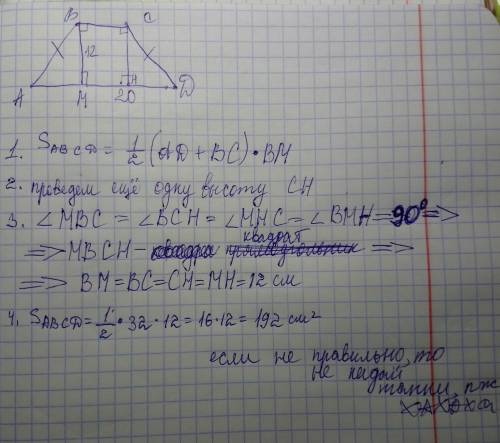 B C
12
A M 20 H D
1. SABCD = 1/2 (AD + BC) · BM
2. проведём ещё одну высоту CH
3. ∠MBC = ∠BCH = ∠MHC = ∠BMH = 90° =>
=> MBCH – квадрат =>
=> BM = BC = CH = MH = 12 см
4. SABCD = 1/2 · 32 · 12 = 16 · 12 = 192 см²
если не правильно, то
не кидай
тапки, пж